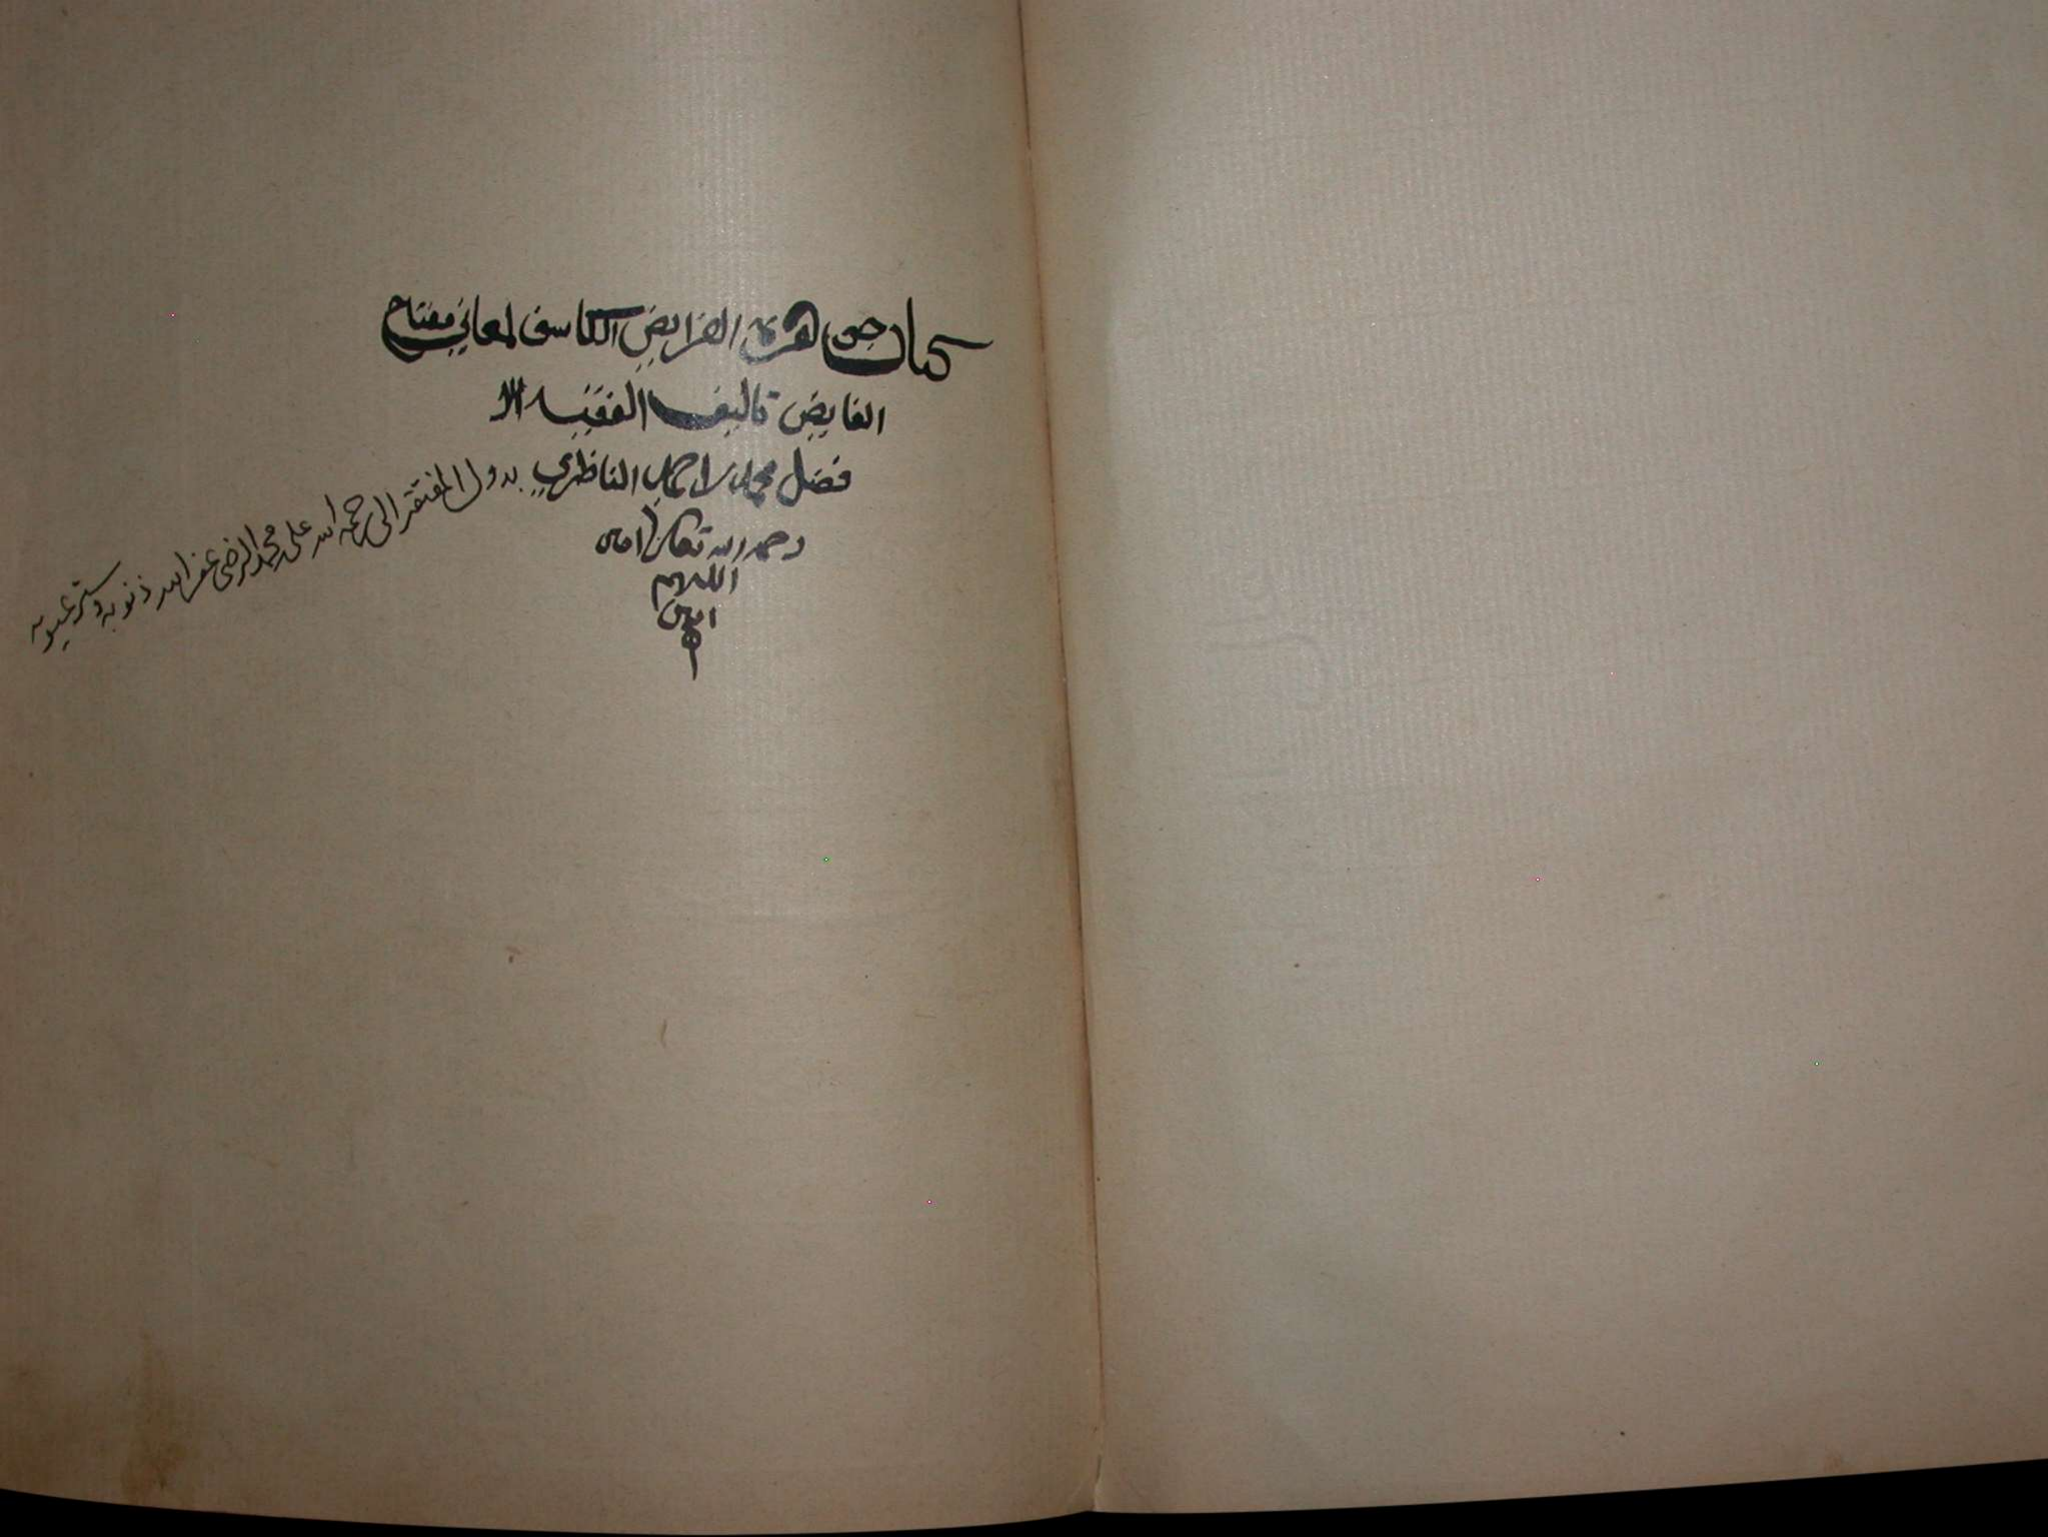 كتاب جوهرة الفرايض الكاشف لمعاني مفتاح
الفايض تاليف الفقيه الا
فضل محمد بن احمد الناظري
رحمه الله تعالى امين
اللهم
امين
المفتقر الى رحمة الله علي محمد الرضي غفر الله ذنوبه وستر عيوبه